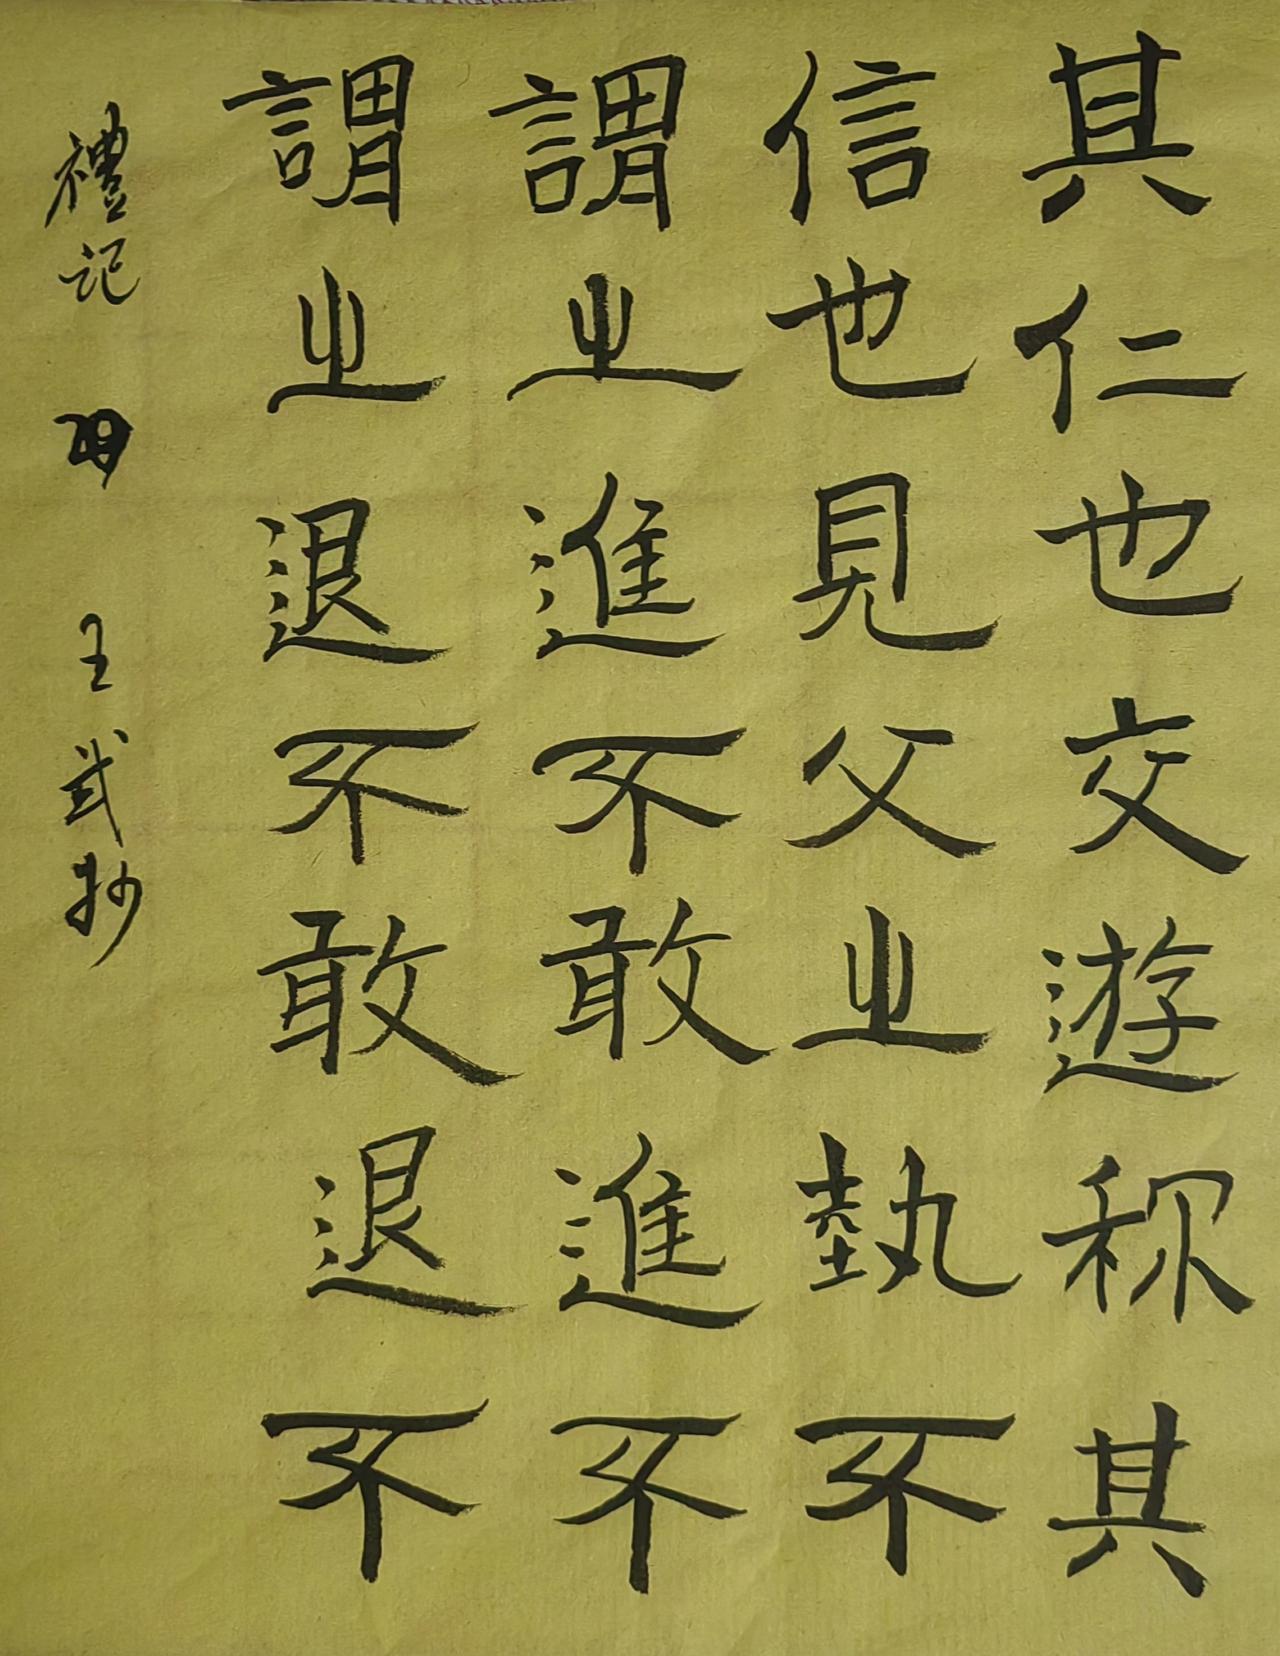 其仁也交遊称其
信也見父之執不
謂之進不敢進不
謂之退不敢退不
禮記 王武抄